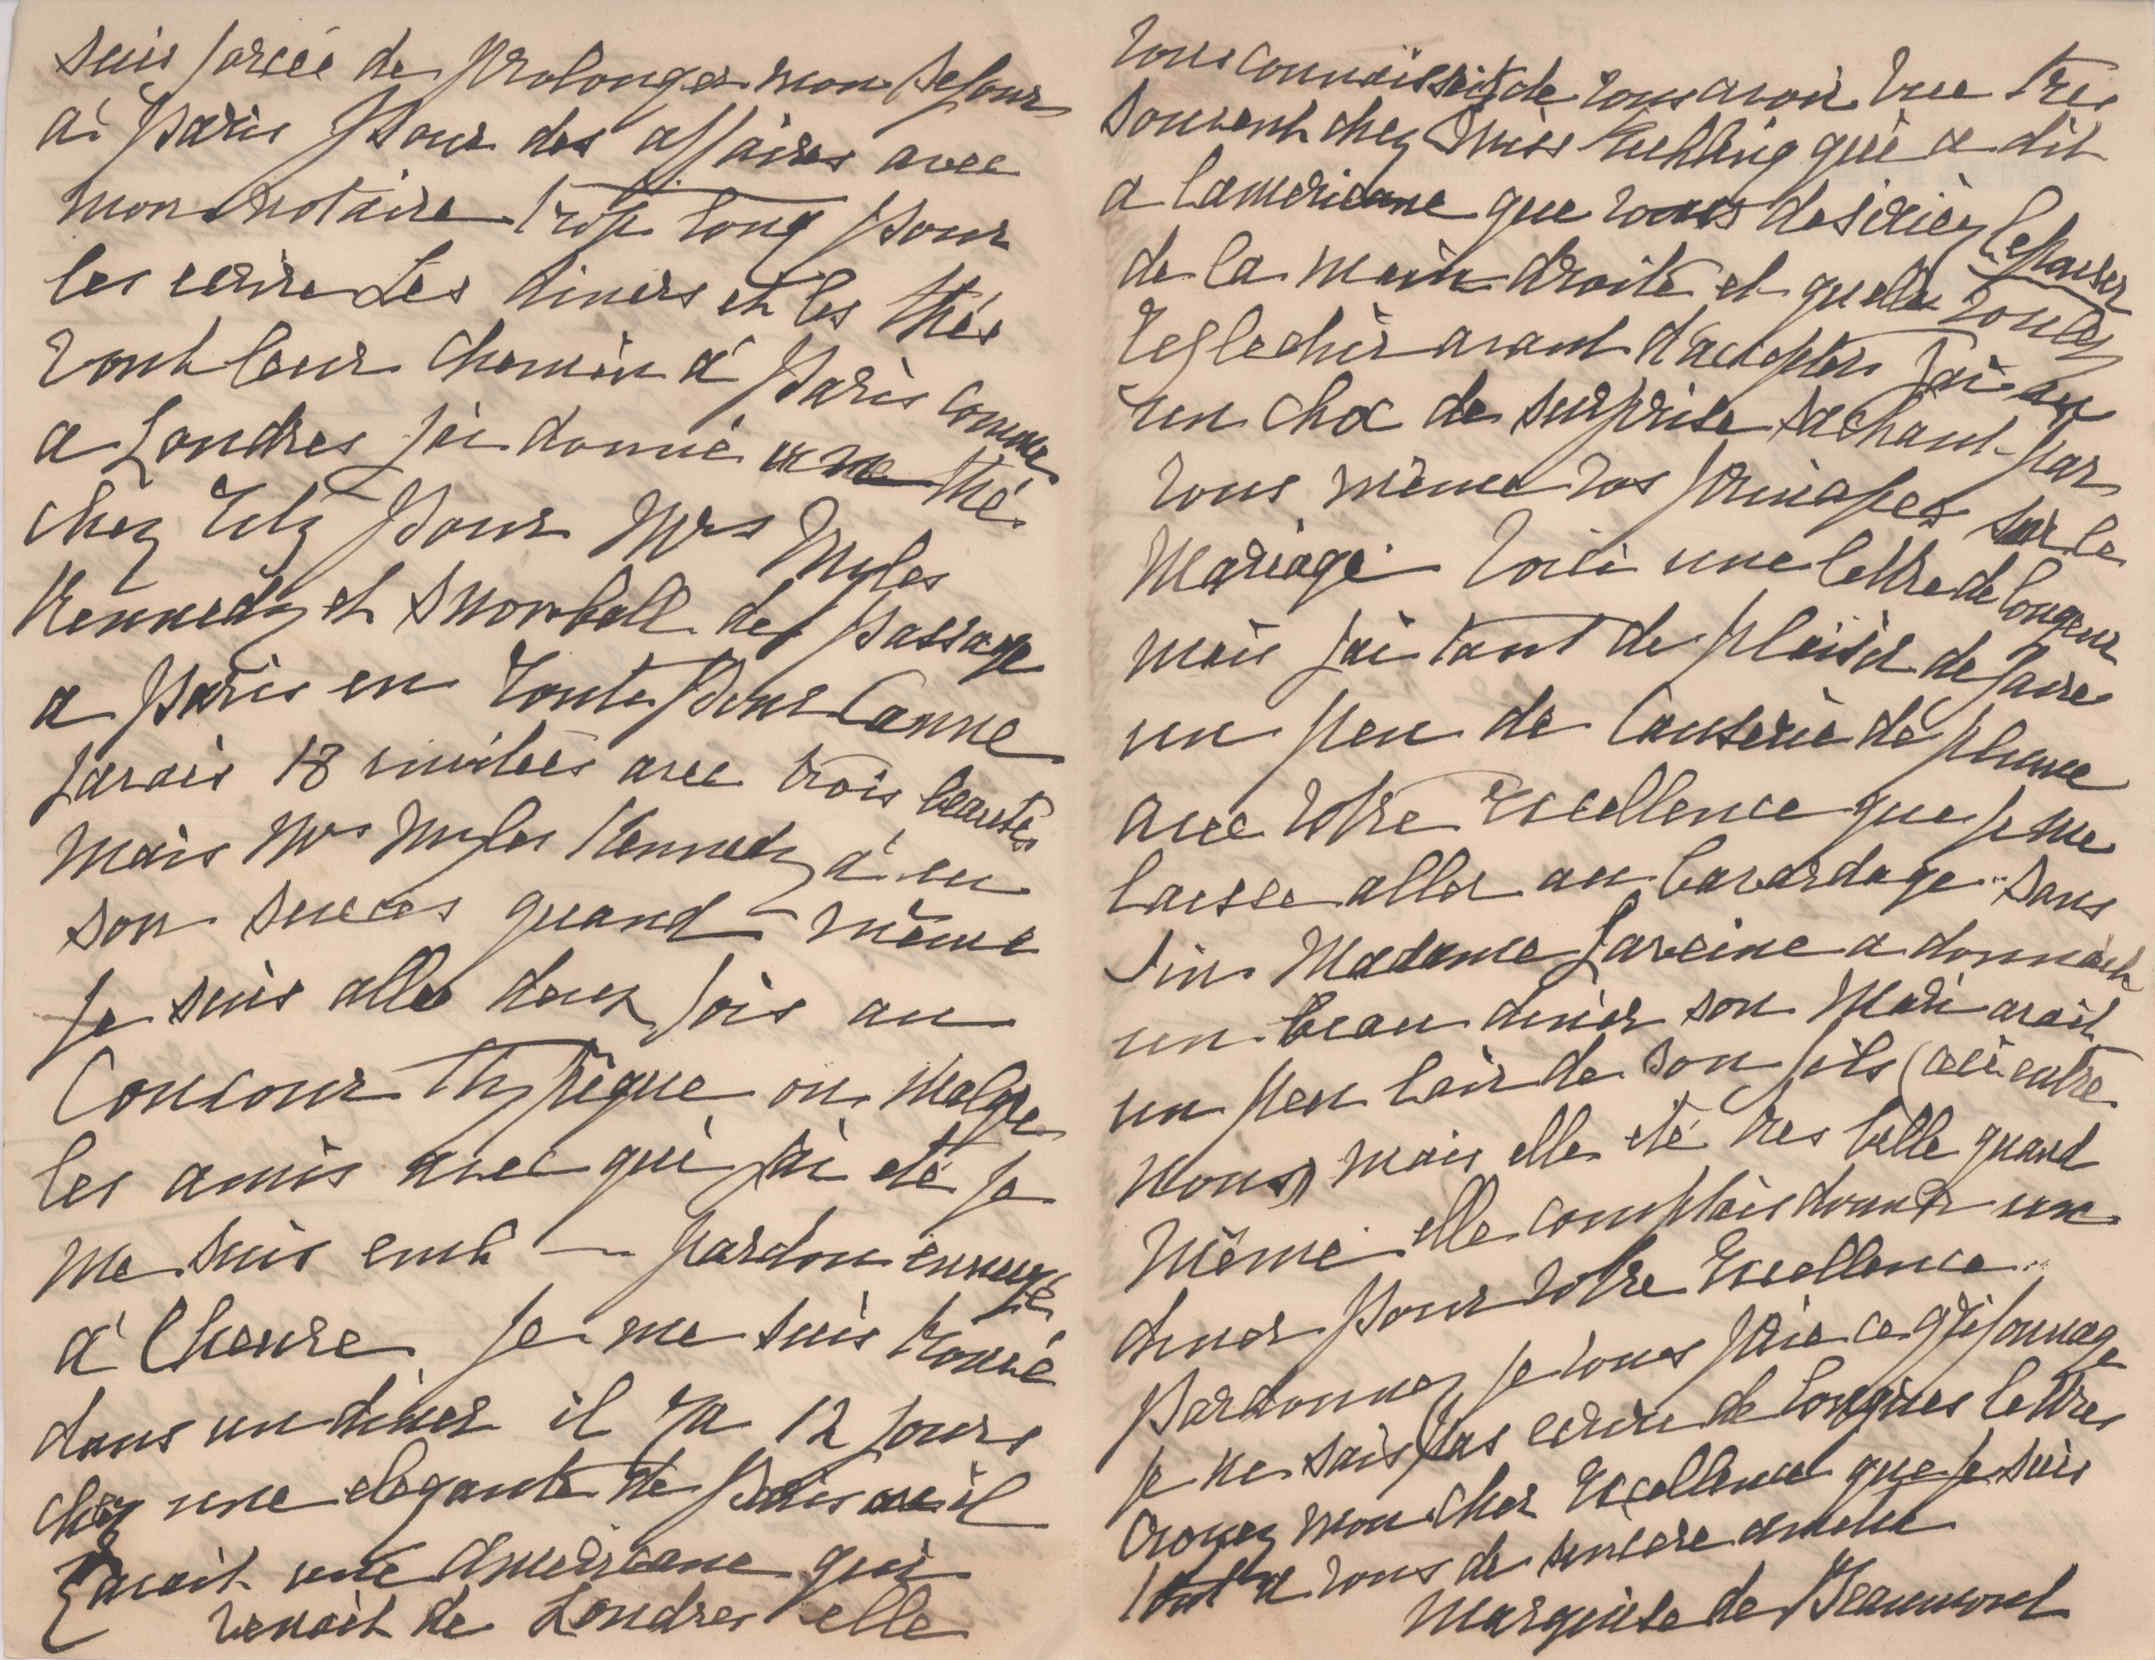 suis forcée de prolonger mon sejour
à Paris pour des affaires avec
mon notaire trop long pour
les ecrire Les diners et les thés
vont leur chemin à Paris comme
a Londres j'ai donné une thé
chez Ritz pour Mrs Myles
Kennedy et Snowball de passage
a Paris en route pour Canne
javais 18 invitées avec trois beautés
Mais Mrs Myles Kennedy à eu
son succes quand même
Je suis allee deux fois au
Concour Hyppique ou malgre
les amis avec qui j'ai eté je
me suis emb — pardon ennuyé
à l'heure Je me suis trouvé
dans un diner il ya 12 jours
chez une elegante de Paris
avait une Americane qui
venait de Londres elle
vous connaissait de vous avoir vue tres
souvent chez Miss qui a dit
a lamericane que vous desiriez lepouser
de la main droite et quelle voulez
reflechir avant d'accepter J'ai eu
un choc de surprise sachant par
vous même vos principes sur le
Mariage Voici une lettre de longeur
mais j'ai tant de plaisir de faire
un peu de causerie de plume
avec Votre Excellence que je me
laisse aller au bavardage sans
fin Madame a donné
un beau diner son Mari avait
un peu lair de son fils (ceci entre
nous) mais elle eté tres belle quand
même elle comptais donner un
diner pour Votre Excellence
Pardonnez je vous prie ce grifonnage
je ne sais pas ecrire de longues lettres
Croyez mon cher Excellence que je suis
tout a vous de sincere amitie
Marquise de Beaumont